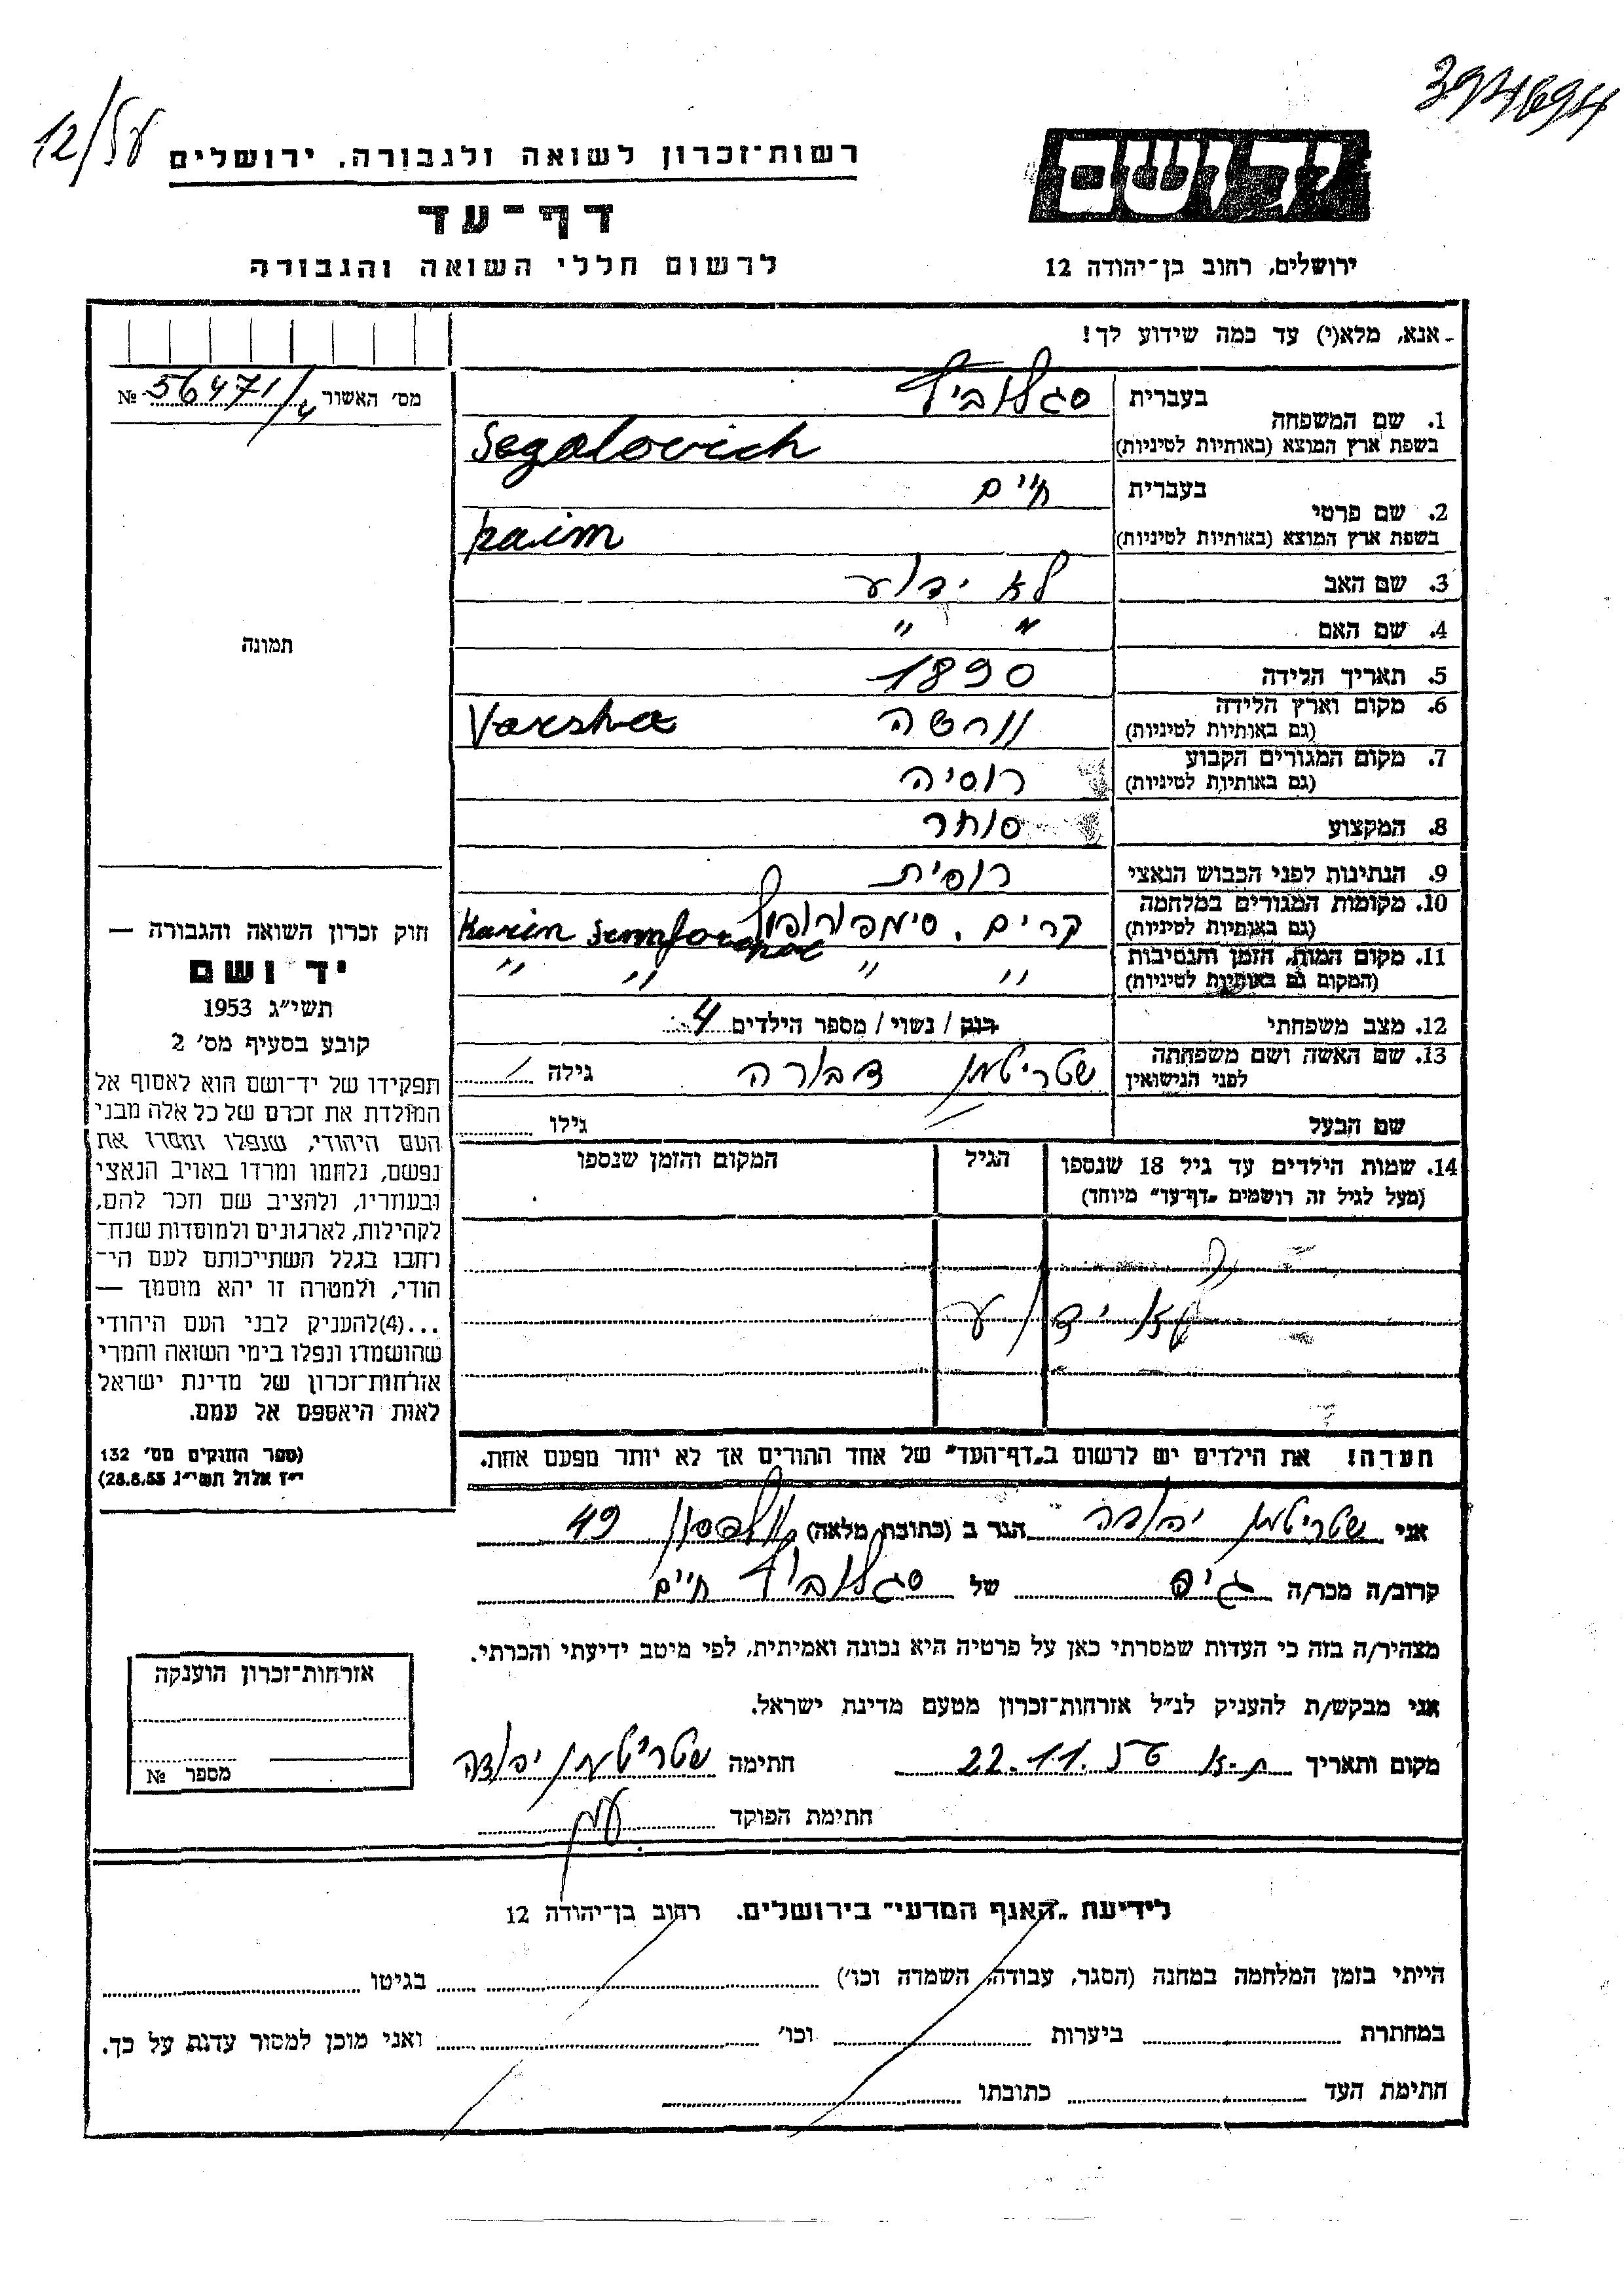 3974694
12/58
רשות־זכרון לשואה ולגבורה, ירושלים
יד ושם
דף־עד
לרשום חללי השואה והגבורה
ירושלים, רחוב בן־יהודה 12
אנא, מלא(י) עד כמה שידוע לך!
מס׳ האשור 56471/ №
1. שם המשפחה
בעברית סגלוביץ
בשפת ארץ המוצא (באותיות לטיניות) Segalovich
2. שם פרטי
בעברית חיים
בשפת ארץ המוצא (באותיות לטיניות) haim
3. שם האב לא ידוע
4. שם האם " "
תמונה
5. תאריך הלידה 1890
6. מקום וארץ הלידה
(גם באותיות לטיניות) וורשה Varsha
7. מקום המגורים הקבוע
(גם באותיות לטיניות) רוסיה
8. המקצוע סוחר
9. הנתינות לפני הכבוש הנאצי רוסית
10. מקומות המגורים במלחמה
(גם באותיות לטיניות) קרים, סימפורופול Karim
11. מקום המות, הזמן והנסיבות
(המקום גם באותיות לטיניות) " " " "
12. מצב משפחתי רווק / נשוי / מספר הילדים 4
13. שם האשה ושם משפחתה
לפני הנישואין שטריטמן דבורה גילה
שם הבעל גילו
14. שמות הילדים עד גיל 18 שנספו
(מעל לגיל זה רושמים „דף־עד" מיוחד)
הגיל
המקום והזמן שנספו
לא ידוע
חוק זכרון השואה והגבורה —
יד ושם
תשי״ג 1953
קובע בסעיף מס׳ 2
תפקידו של יד־ושם הוא לאסוף אל
המולדת את זכרם של כל אלה מבני
העם היהודי, שנפלו ומסרו את
נפשם, נלחמו ומרדו באויב הנאצי
ובעוזריו, ולהציב שם וזכר להם,
לקהילות, לארגונים ולמוסדות שנח־
רחבו בגלל השתייכותם לעם הי־
הודי, ולמטרה זו יהא מוסמך —
...(4)להעניק לבני העם היהודי
שהושמדו ונפלו בימי השואה והמרי
אזרחות־זכרון של מדינת ישראל
לאות היאספם אל עמם.
(ספר החוקים מס׳ 132
י״ז אלול תשי״ג 28.8.53)
הערה! את הילדים יש לרשום ב„דף־העד" של אחד ההורים אך לא יותר מפעם אחת.
אני שטריטמן יהודה הגר ב (כתובת מלאה) וולפסון 49
קרוב/ה מכר/ה גיס של סגלוביץ חיים
מצהיר/ה בזה כי העדות שמסרתי כאן על פרטיה היא נכונה ואמיתית, לפי מיטב ידיעתי והכרתי.
אני מבקש/ת להעניק לנ״ל אזרחות־זכרון מטעם מדינת ישראל.
מקום ותאריך ת.א 22.11.56 חתימה שטריטמן יהודה
חתימת הפוקד
אזרחות־זכרון הוענקה
מספר №
לידיעת „האגף המדעי" בירושלים, רחוב בן־יהודה 12
הייתי בזמן המלחמה במחנה (הסגר, עבודה, השמדה וכו׳) בגיטו
במחתרת ביערות וכו׳ ואני מוכן למסור עדות על כך.
חתימת העד כתובתו